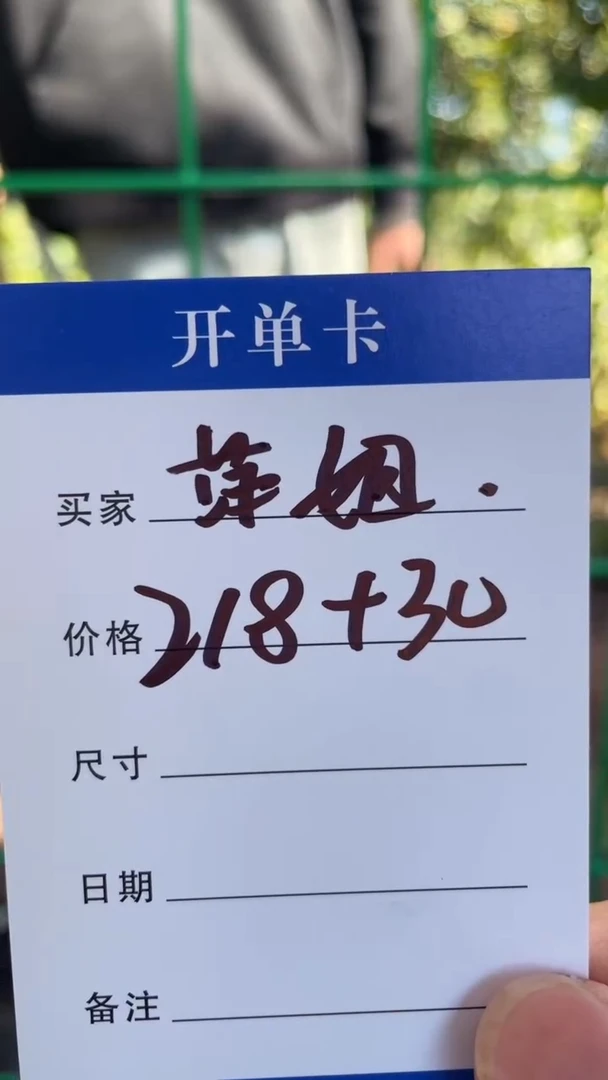 开单卡
买家 萍姐.
价格 218+30
尺寸
日期
备注